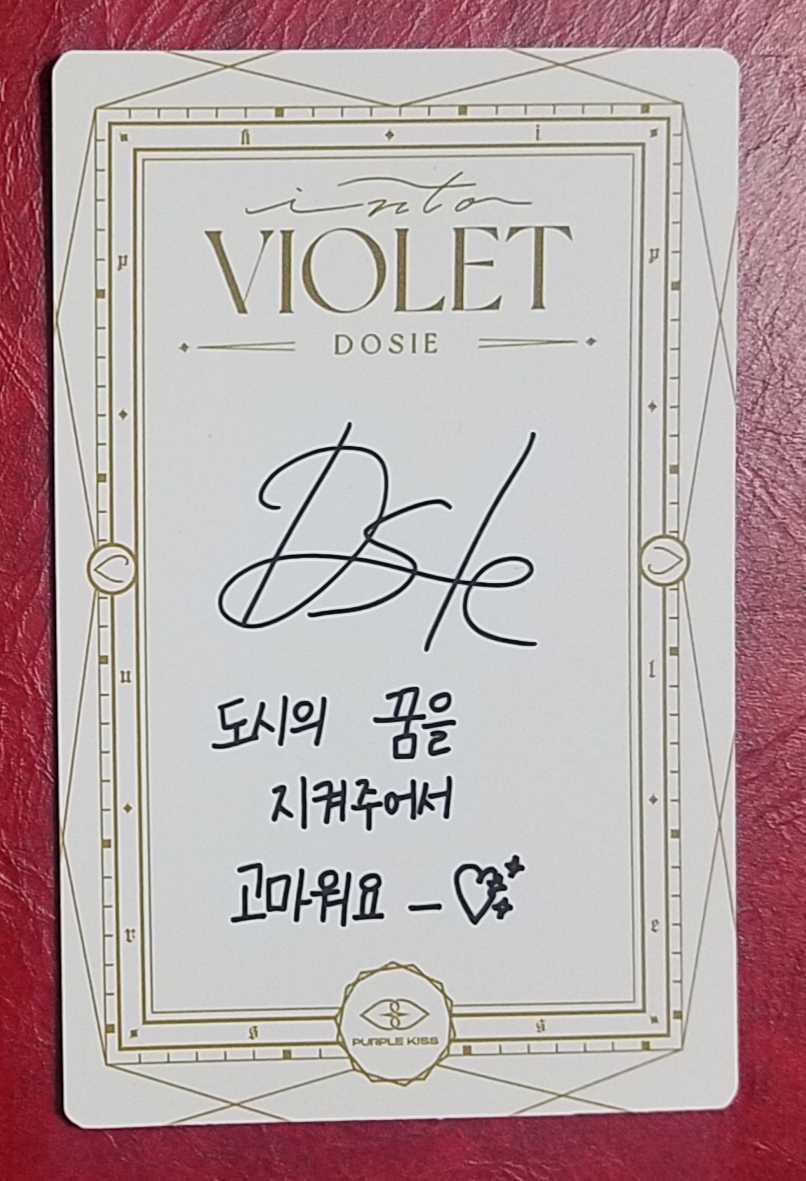 into
VIOLET
DOSIE
Dosie
도시의 꿈을
지켜주어서
고마워요 –
PURPLE KISS